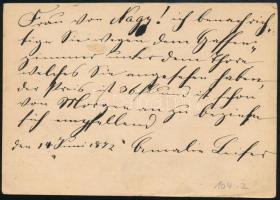 Frau von Nagy! ich benachrich-
tige Sie wegen dem Gassen
Zimmer unter dem Thore
welches Sie angesehen haben,
der Preis ist 36 f und ist schon
von Morgen an zu beziehen
sich empfehlend
den 14 Juni 1872 Amalia
104-2